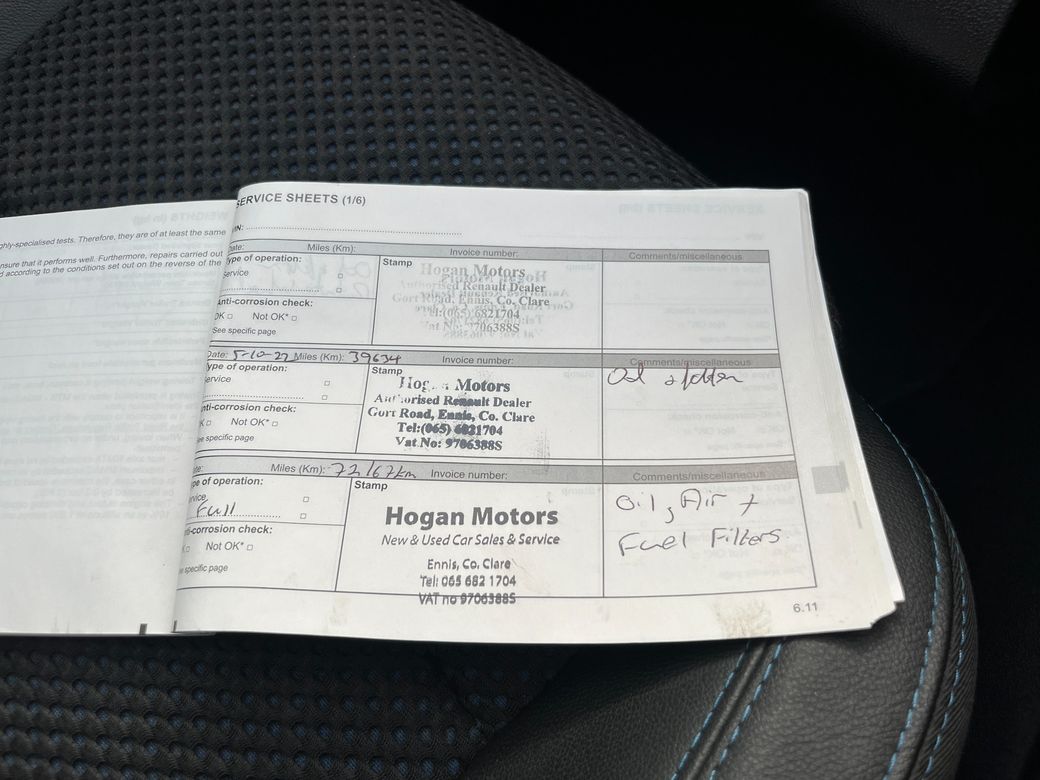 ghly-specialised tests. Therefore, they are of at least the same
nsure that it performs well. Furthermore, repairs carried out
d according to the conditions set out on the reverse of the
SERVICE SHEETS (1/6)
Date: Miles (Km): Invoice number: Comments/miscellaneous
Type of operation:
Service
Anti-corrosion check:
OK □ Not OK* □
See specific page
Stamp
Hogan Motors
Authorised Renault Dealer
Gort Road, Ennis, Co. Clare
Tel:(065) 6821704
Vat No: 9706388S
Date: 5-10-22 Miles (Km): 39634 Invoice number: Comments/miscellaneous
Type of operation:
ervice
nti-corrosion check:
K □ Not OK* □
ee specific page
Stamp
Hogan Motors
Authorised Renault Dealer
Gort Road, Ennis, Co. Clare
Tel:(065) 6821704
Vat No: 9706388S
Oil
te: Miles (Km): 72167km Invoice number: Comments/miscellaneous
pe of operation:
rvice
Full
i-corrosion check:
□ Not OK* □
specific page
Stamp
Hogan Motors
New & Used Car Sales & Service
Ennis, Co. Clare
Tel: 065 682 1704
VAT no 9706388S
Oil, Air +
Fuel Filters
6.11